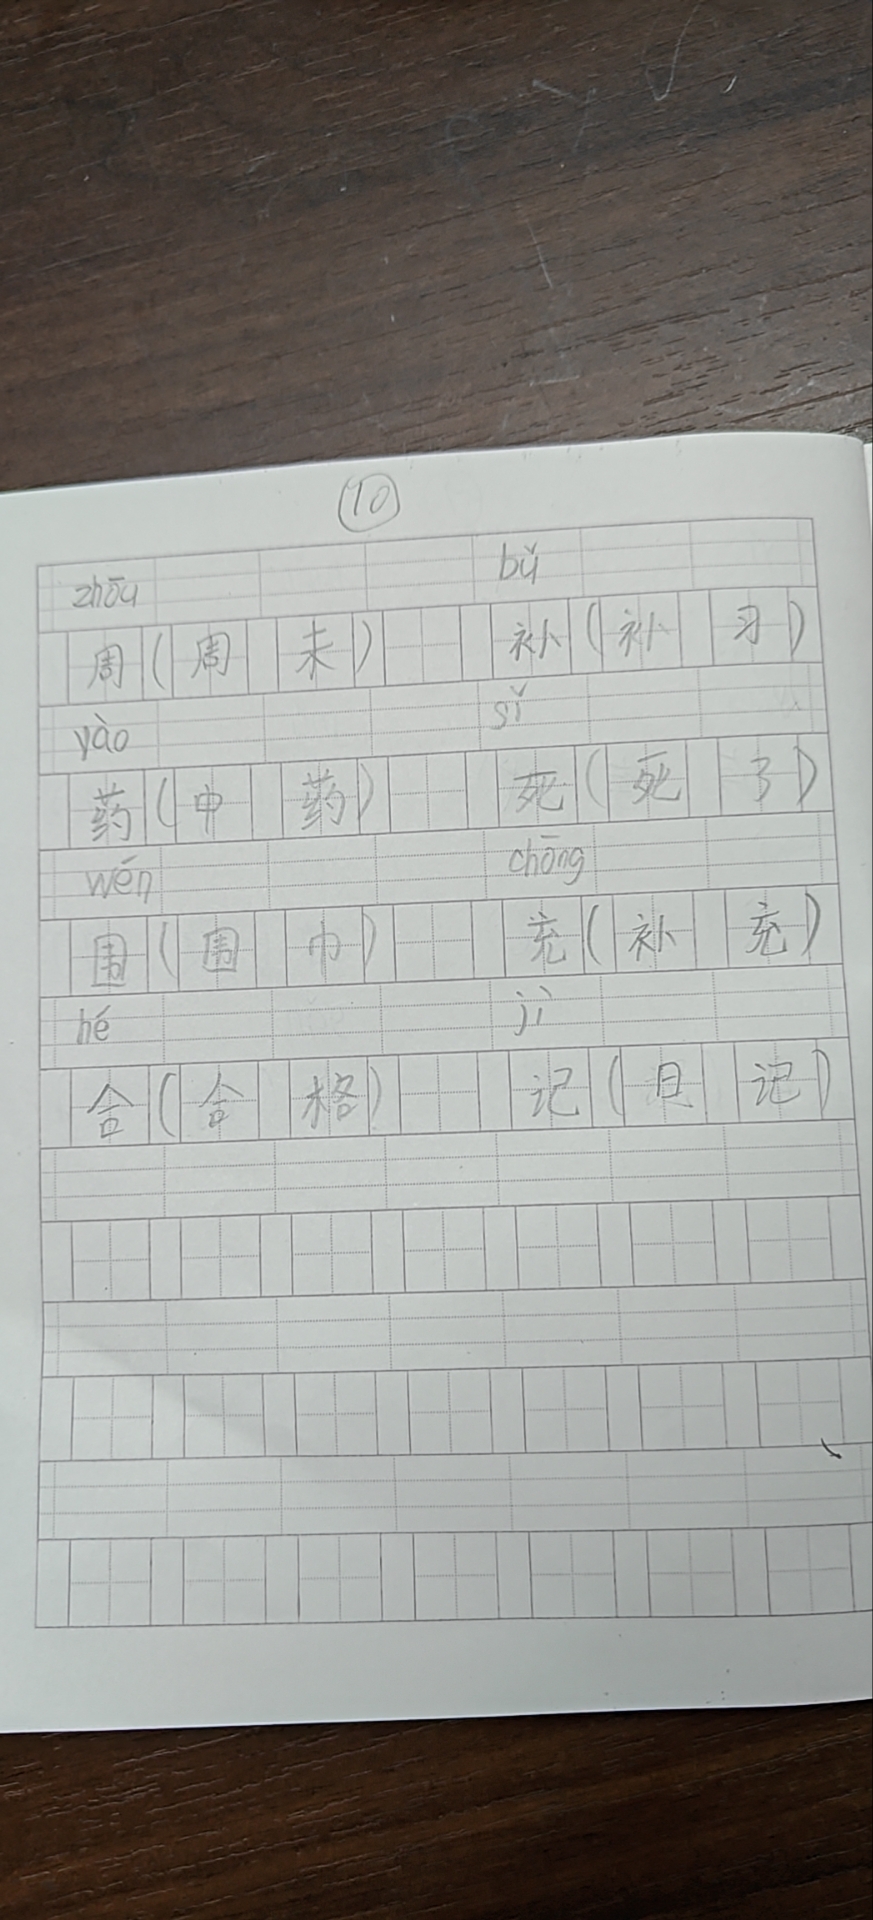 10
zhōu bǔ
周(周末) 补(补习)
yào sǐ
药(中药) 死(死了)
wén chōng
围(围巾) 充(补充)
hé jì
合(合格) 记(日记)